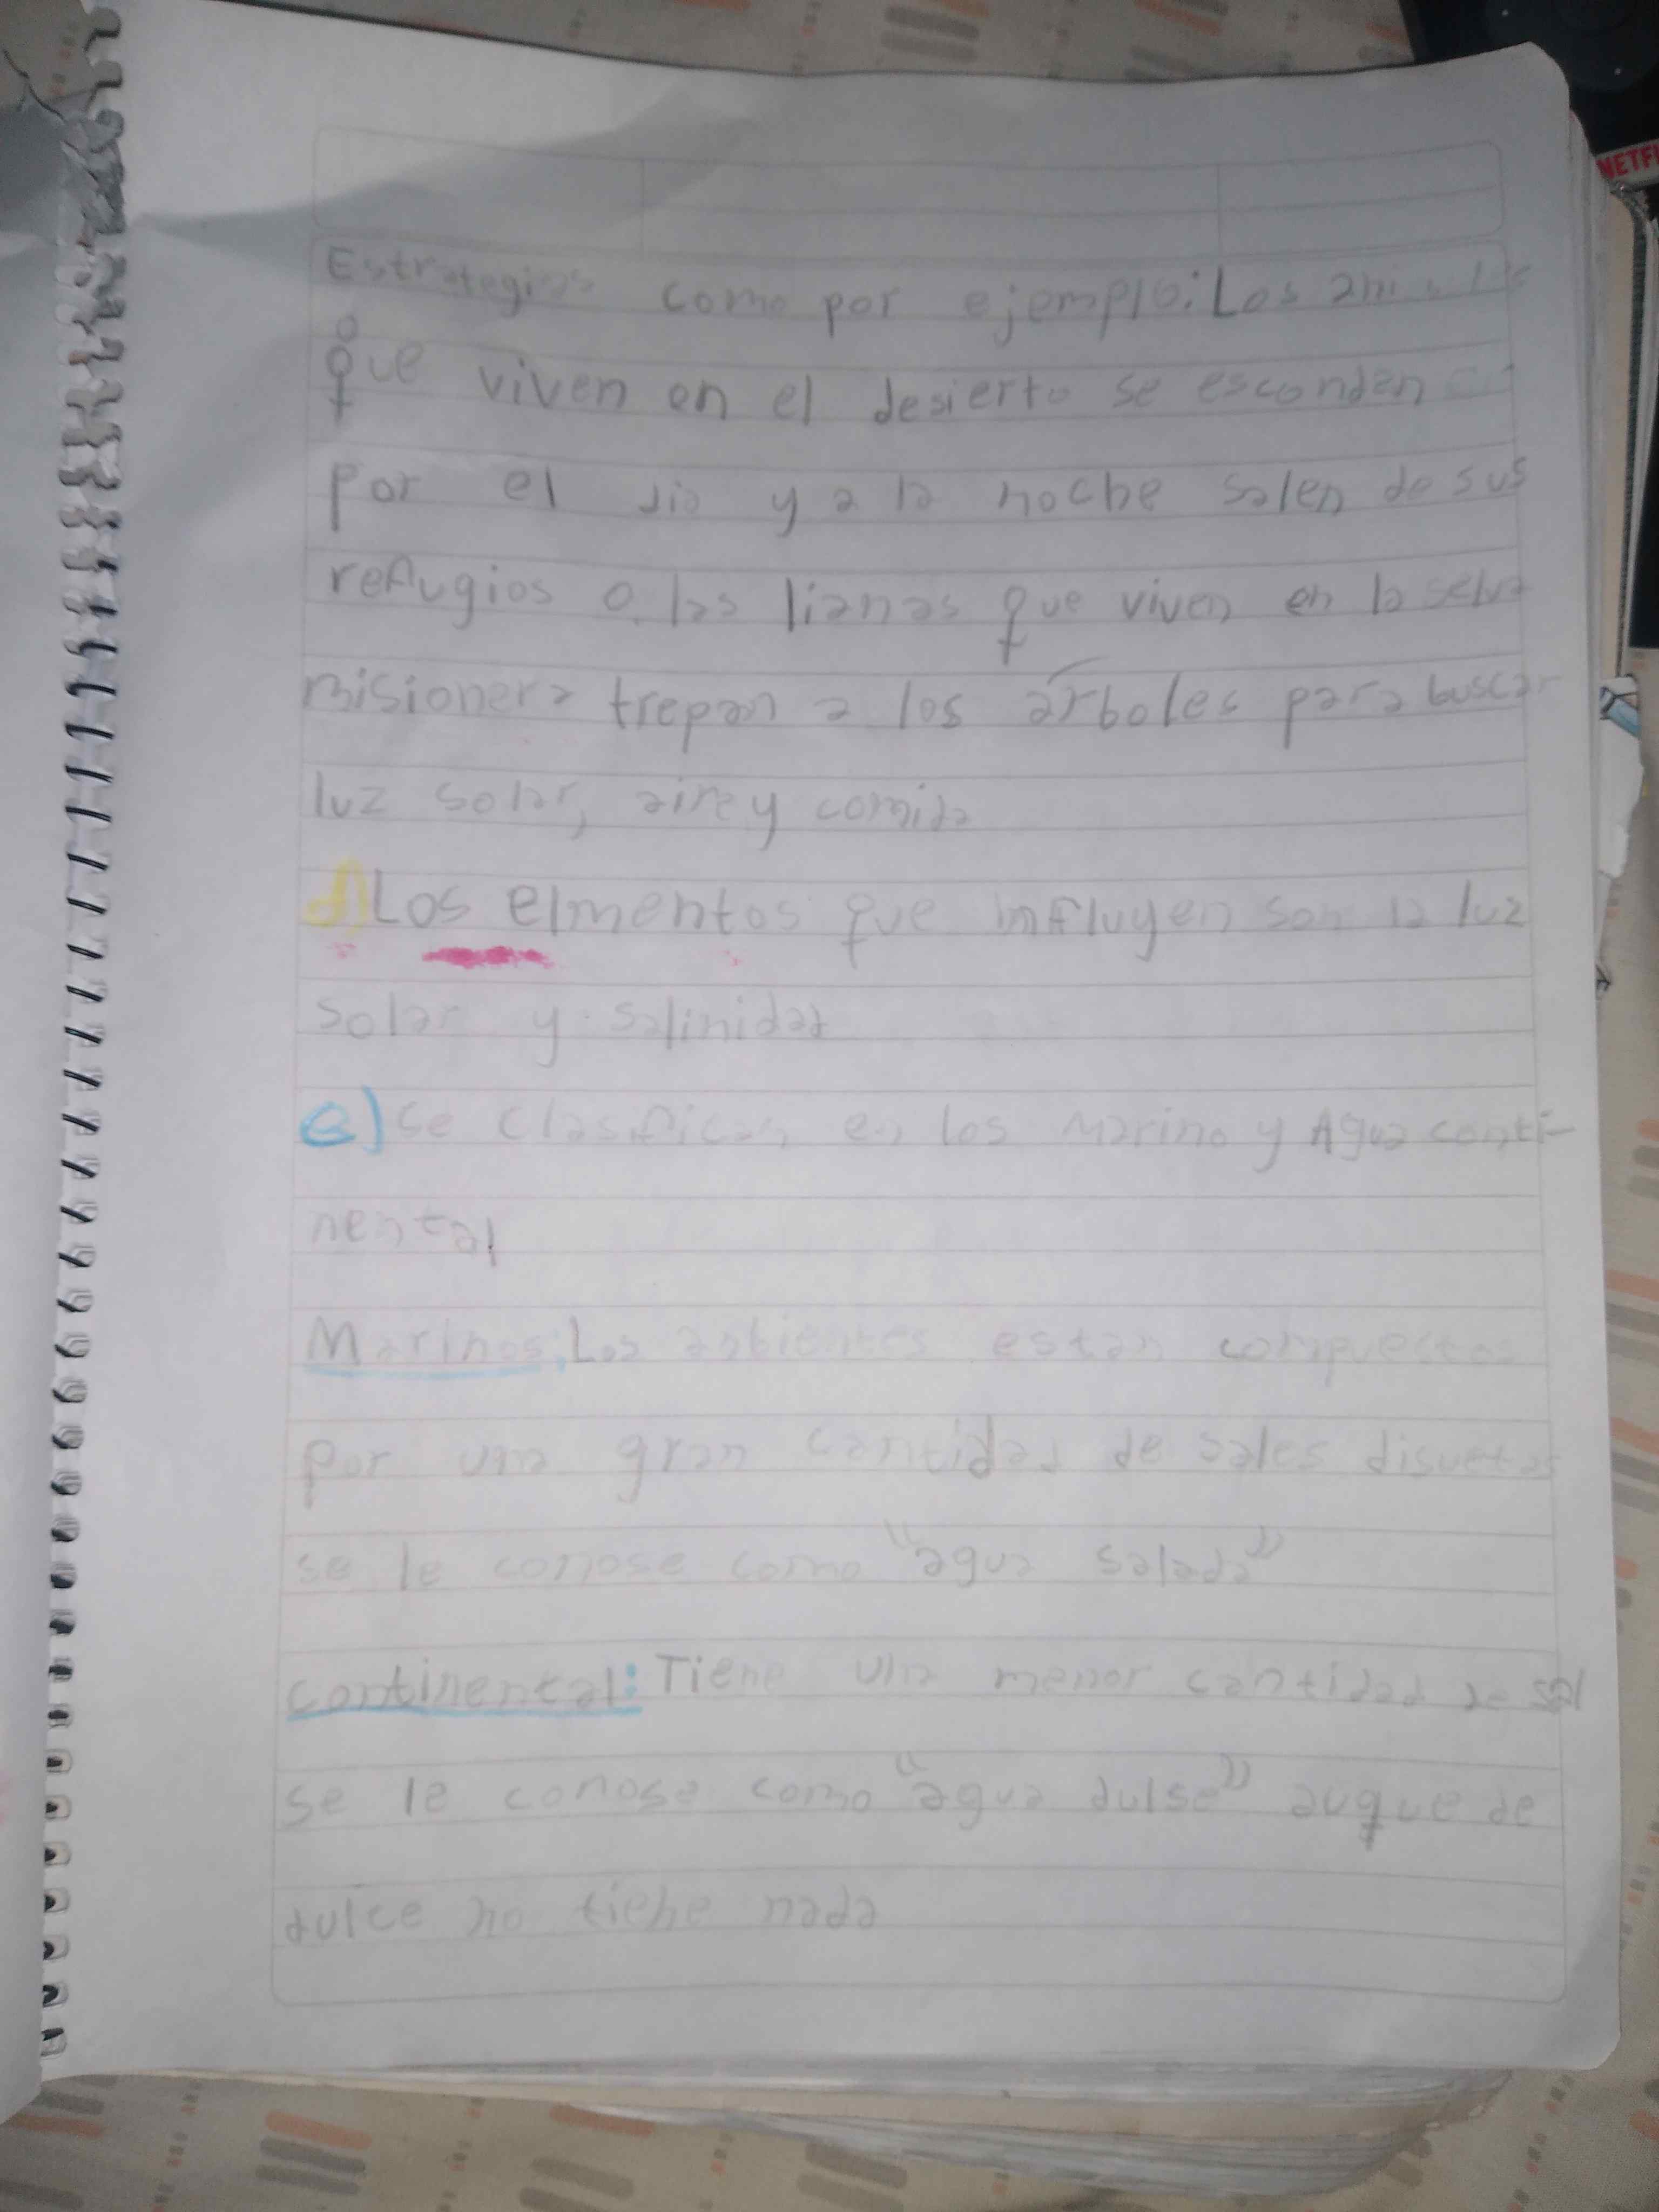 NETFL
Estrategias como por ejemplo: Los
que viven en el desierto se esconden
por el dia y a la noche salen de sus
refugios o las lianas que viven en la selva
misionera trepan a los árboles para buscar
luz solar, aire y comida
d) Los elmentos que influyen son la luz
solar y salinidad
e) Se clasifican en los Marino y Agua conti-
nental
Marinos: Los estan compuestos
por una gran cantidad de sales disuetas
se le conose como "agua salada"
continental: Tiene una menor cantidad de sal
se le conose como "agua dulse" auque de
dulce no tiene nada